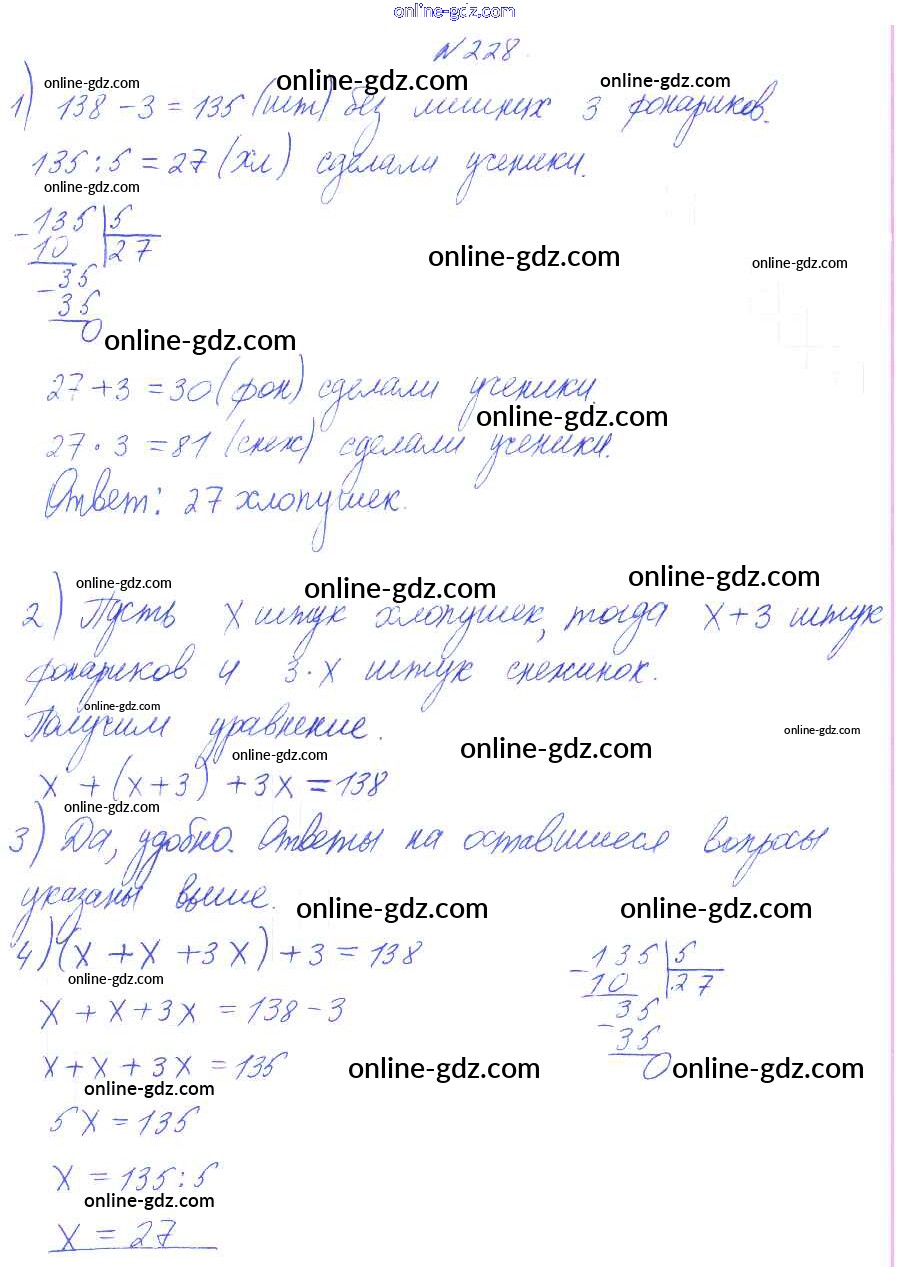 online-gdz.com
N 228.
online-gdz.com online-gdz.com online-gdz.com
1) 138 - 3 = 135 (шт) без лишних 3 фонариков.
135 : 5 = 27 (хл) сделали ученики.
online-gdz.com
- 135 | 5
10 | 27
online-gdz.com online-gdz.com
- 35
35
0
online-gdz.com
27 + 3 = 30 (фон) сделали ученики.
online-gdz.com
27 · 3 = 81 (снеж) сделали ученики.
Ответ: 27 хлопушек.
online-gdz.com online-gdz.com online-gdz.com
2) Пусть x штук хлопушек, тогда x + 3 штук
фонариков и 3 · x штук снежинок.
online-gdz.com
Получим уравнение.
online-gdz.com online-gdz.com online-gdz.com
x + (x + 3) + 3x = 138
online-gdz.com
3) Да, удобно. Ответы на оставшиеся вопросы
указаны выше.
online-gdz.com online-gdz.com
4) (x + x + 3x) + 3 = 138
- 135 | 5
10 | 27
online-gdz.com
x + x + 3x = 138 - 3
- 35
35
x + x + 3x = 135
0
online-gdz.com online-gdz.com
online-gdz.com
5x = 135
x = 135 : 5
online-gdz.com
x = 27